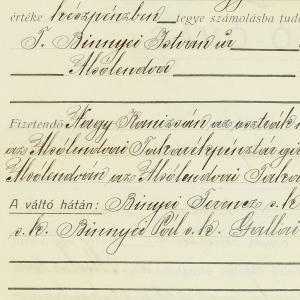 értéke készpénzben tegye számolásba tudó
T. Binnyei István úr
Alsólendva
Fizetendő Nagy-Kanizsán az osztrák
az Alsólendvai Takarékpénztár
Alsólendván az Alsólendvai Taka
A váltó hátán: Binyei Ferencz s.k.
s.k. Binnyei Pál s.k. Gallai